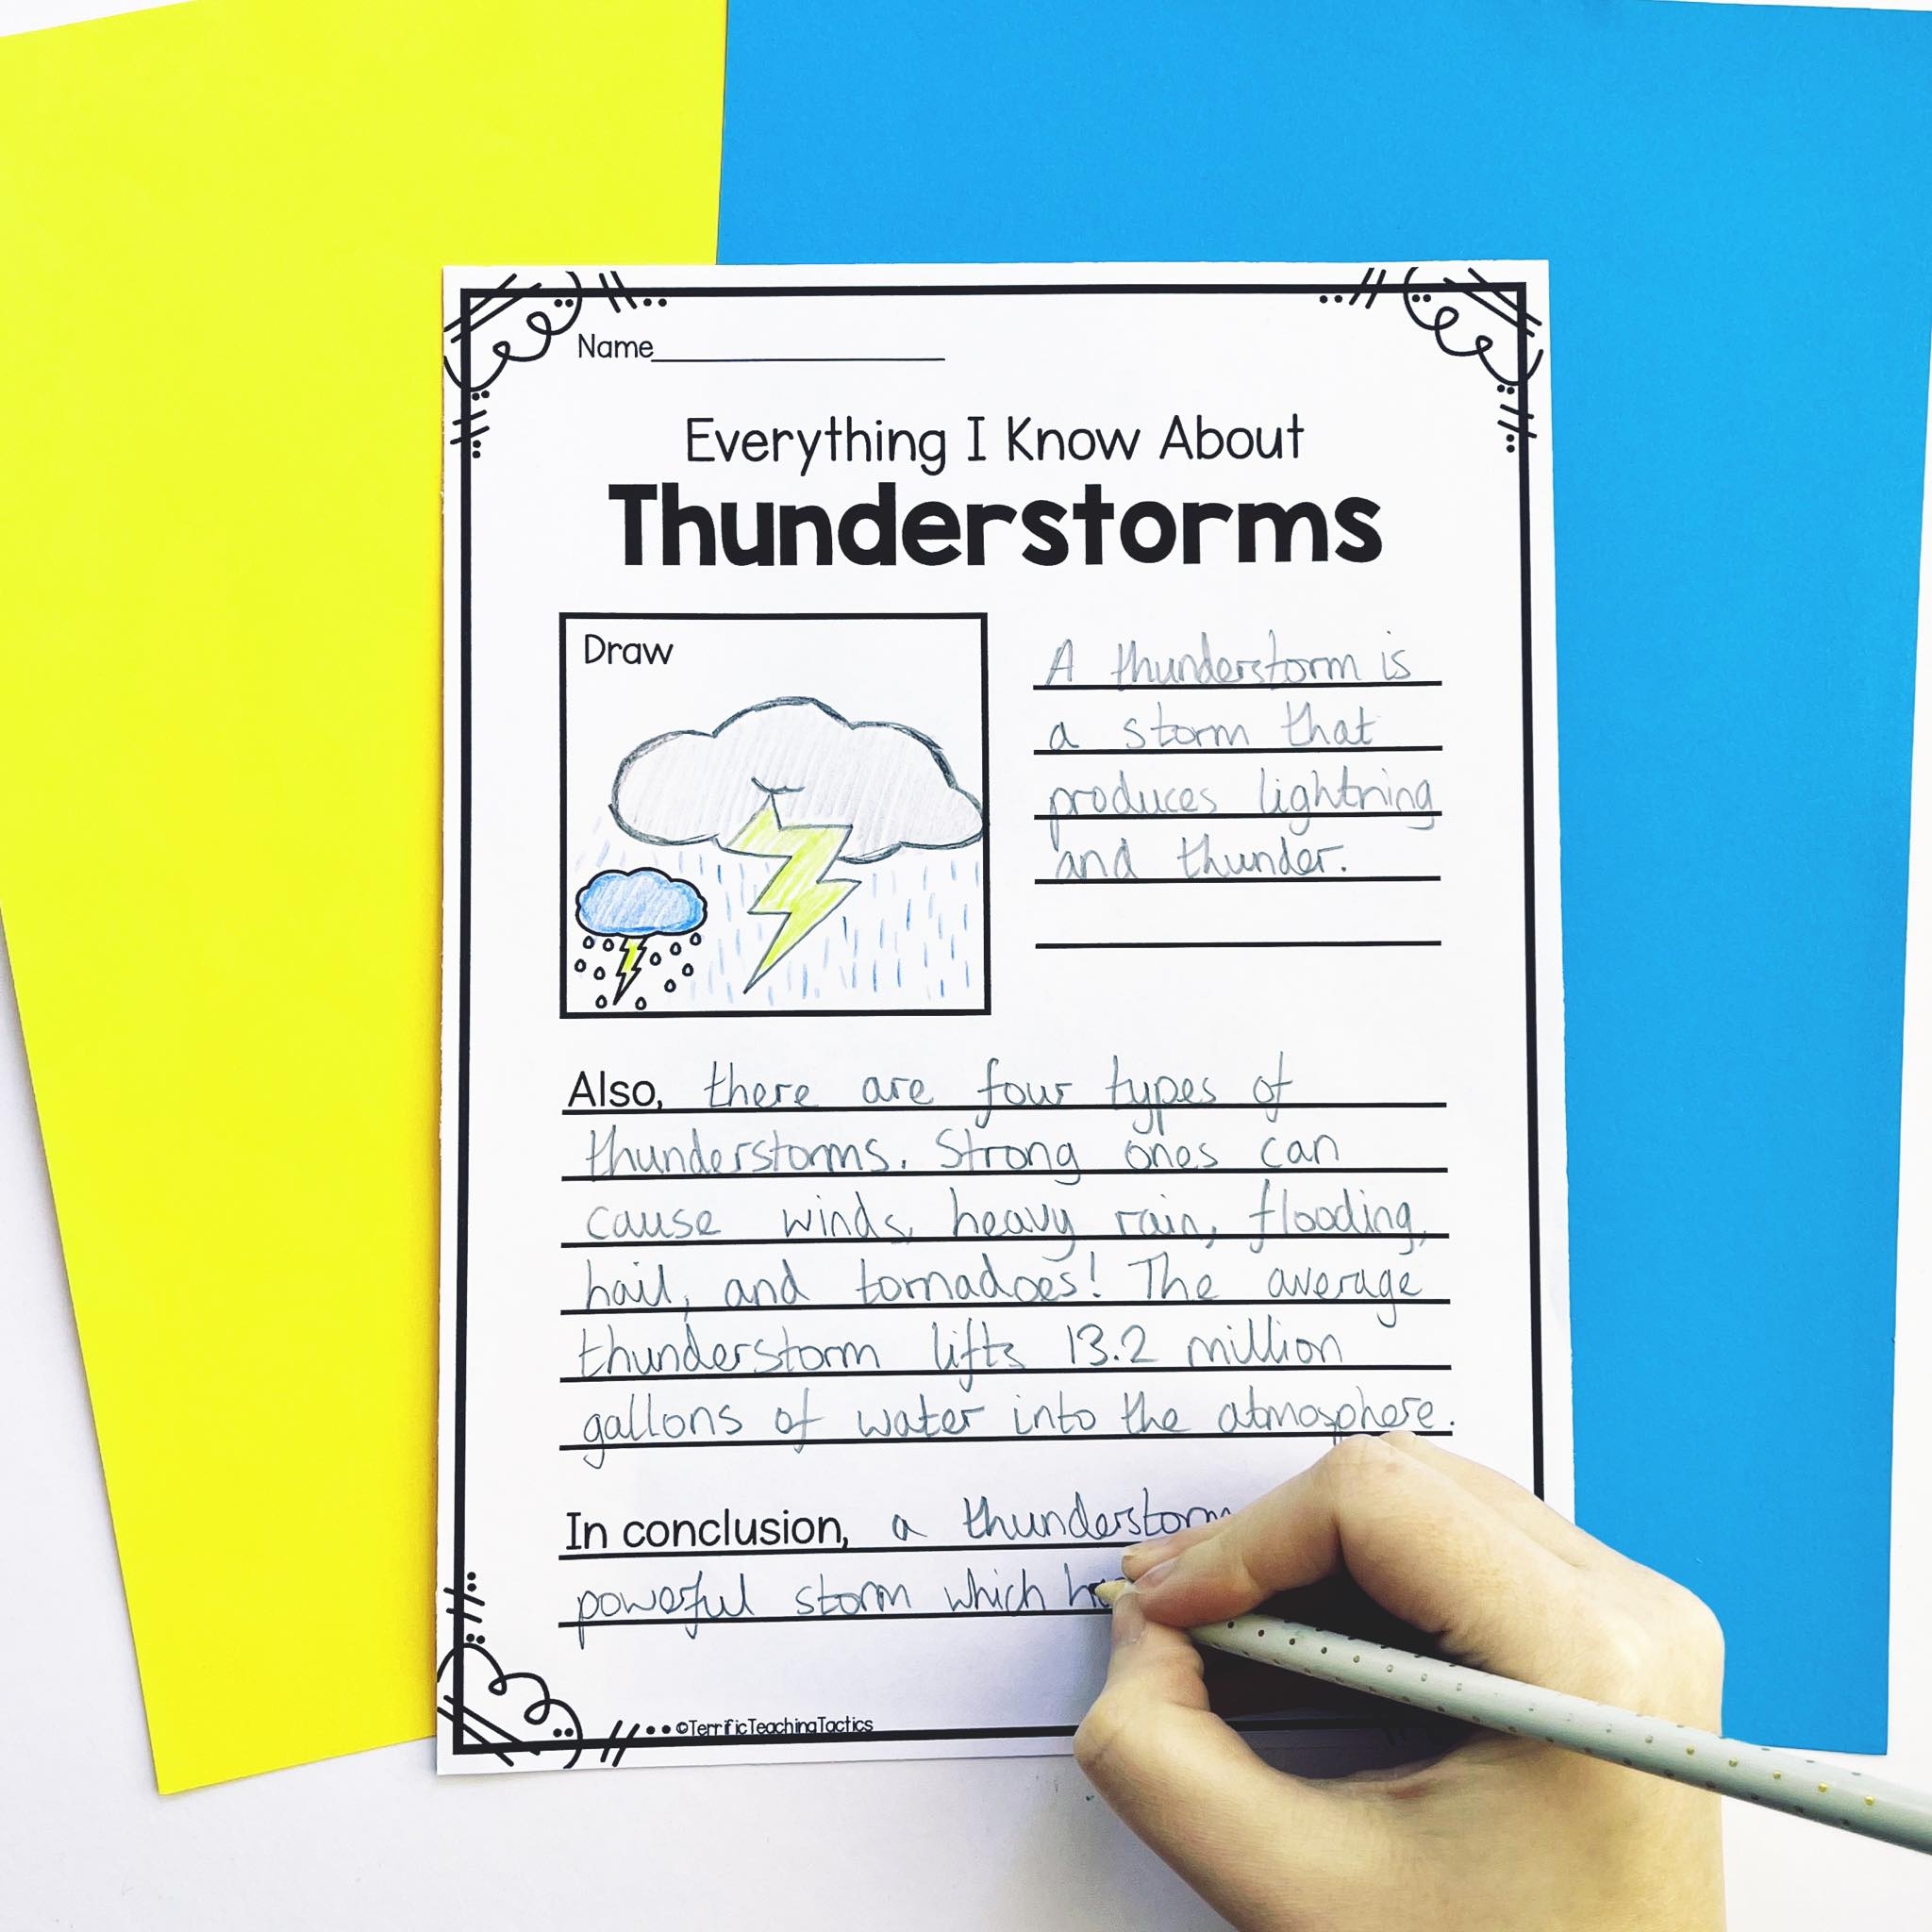 Name
Everything I Know About
Thunderstorms
Draw
A thunderstorm is
a storm that
produces lightning
and thunder.
Also, there are four types of
thunderstorms. Strong ones can
cause winds, heavy rain, flooding,
hail, and tornadoes! The average
thunderstorm lifts 13.2 million
gallons of water into the atmosphere.
In conclusion, a thunderstorm
powerful storm which
©TerrificTeachingTactics